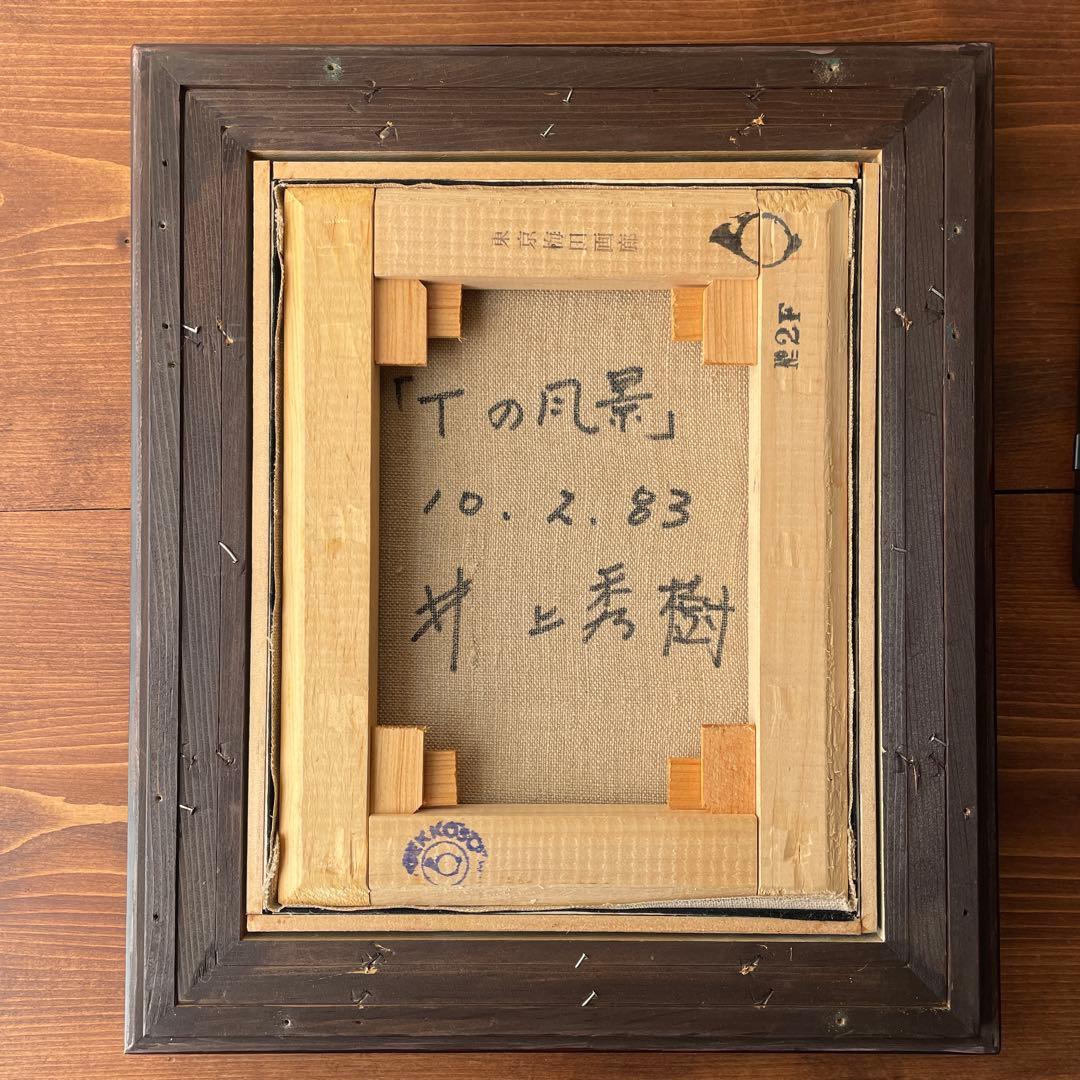 東京梅田画廊
№2F
「Tの風景」
10.2.83
井上秀樹
GEKKOSO